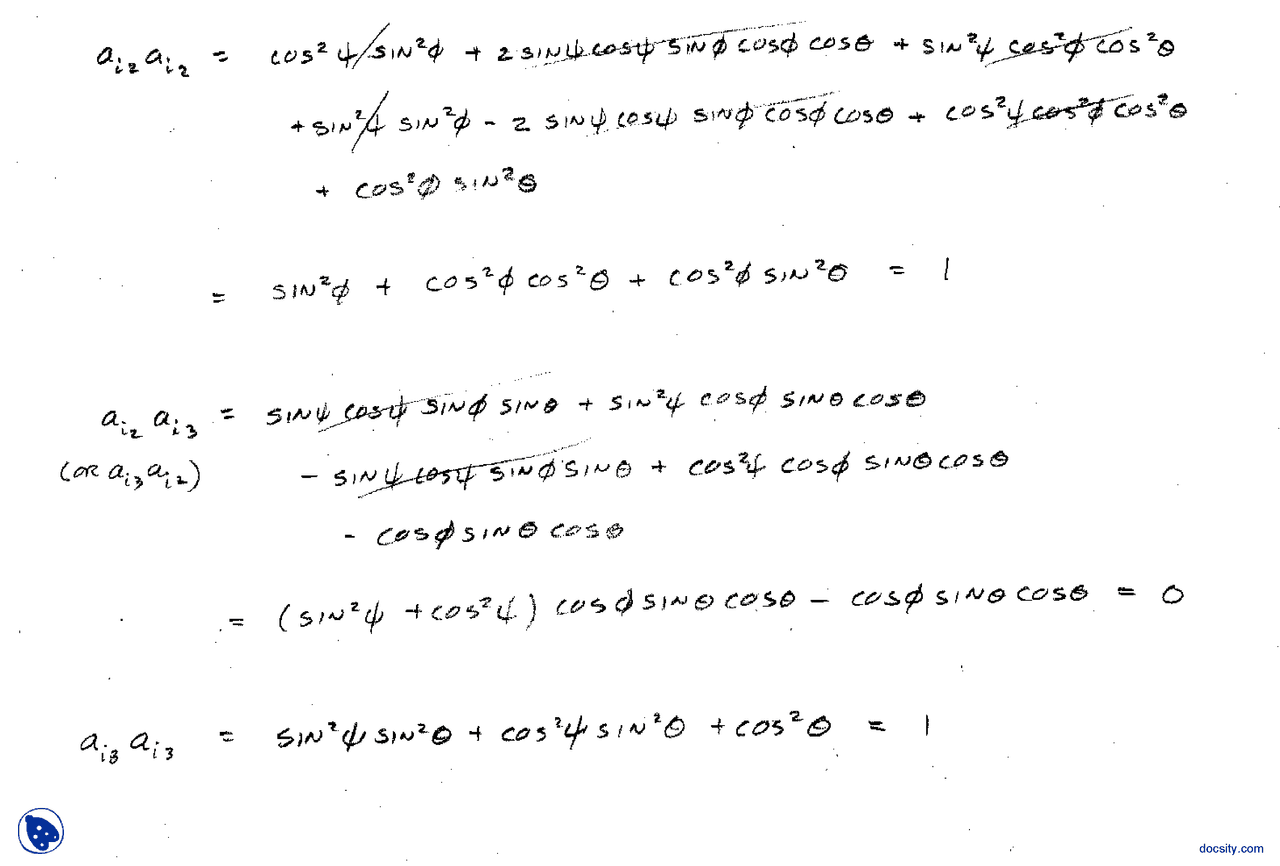 aᵢ₂ aᵢ₂ = cos²ψ sin²ϕ + 2 sinψ cosψ sinϕ cosϕ cosθ + sin²ψ cos²ϕ cos²θ
+ sin²ψ sin²ϕ - 2 sinψ cosψ sinϕ cosϕ cosθ + cos²ψ cos²ϕ cos²θ
+ cos²ϕ sin²θ
= sin²ϕ + cos²ϕ cos²θ + cos²ϕ sin²θ = 1
aᵢ₂ aᵢ₃ = sinψ cosψ sinϕ sinθ + sin²ψ cosϕ sinθ cosθ
(OR aᵢ₃ aᵢ₂) - sinψ cosψ sinϕ sinθ + cos²ψ cosϕ sinθ cosθ
- cosϕ sinθ cosθ
= (sin²ψ + cos²ψ) cosϕ sinθ cosθ - cosϕ sinθ cosθ = 0
aᵢ₃ aᵢ₃ = sin²ψ sin²θ + cos²ψ sin²θ + cos²θ = 1
docsity.com